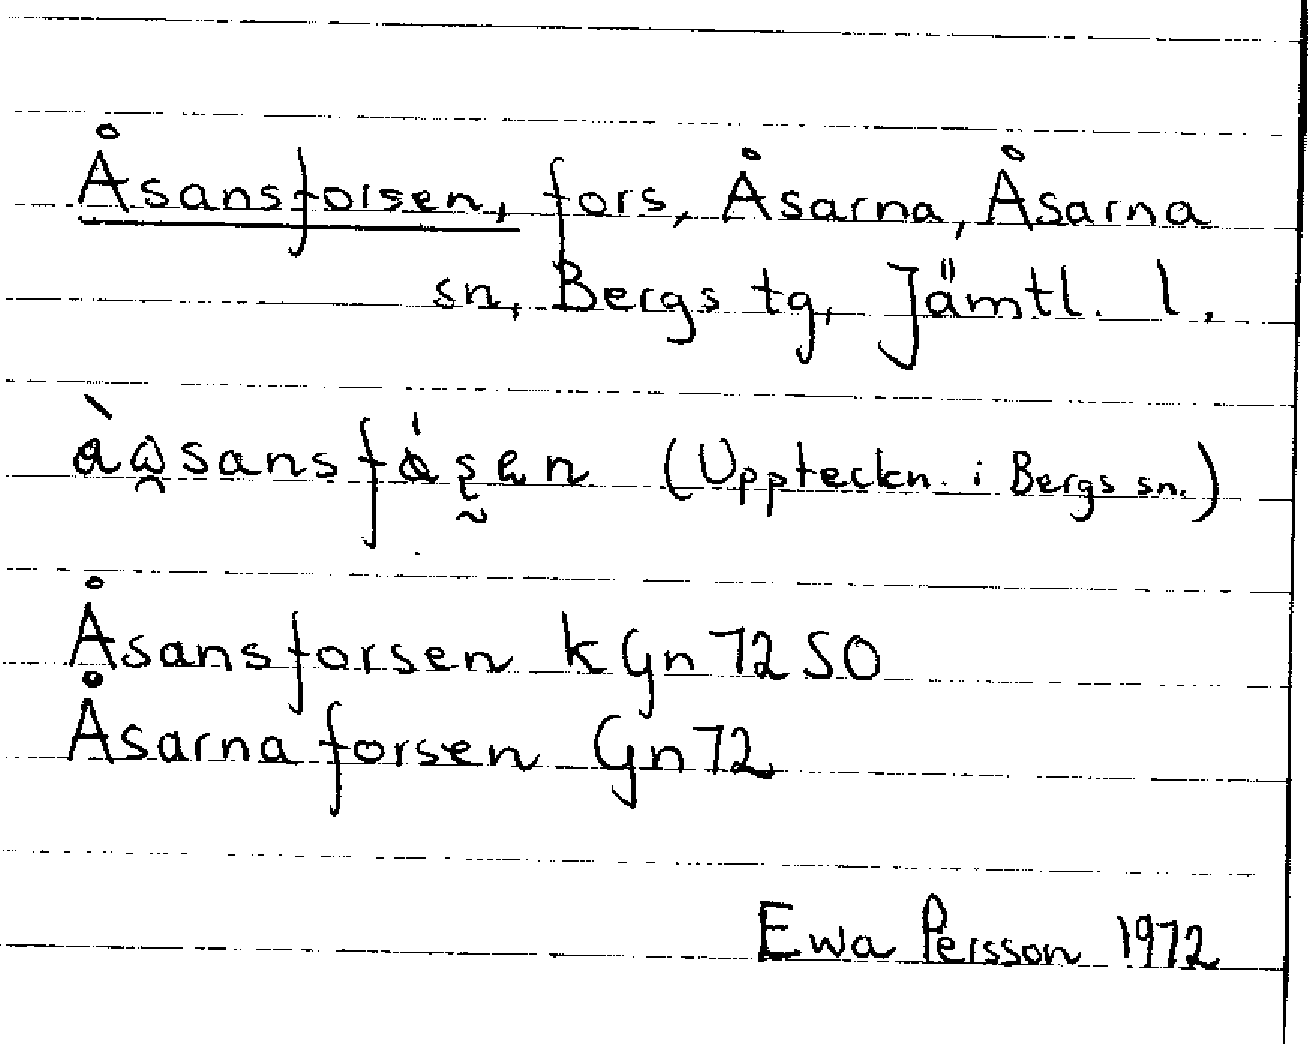 Åsansforsen, fors, Åsarna, Åsarna
sn, Bergs tg, Jämtl. l.
(Uppteckn. i Bergs sn.)
Åsansforsen k Gn 72 SO
Åsarnaforsen Gn 72
Ewa Persson 1972